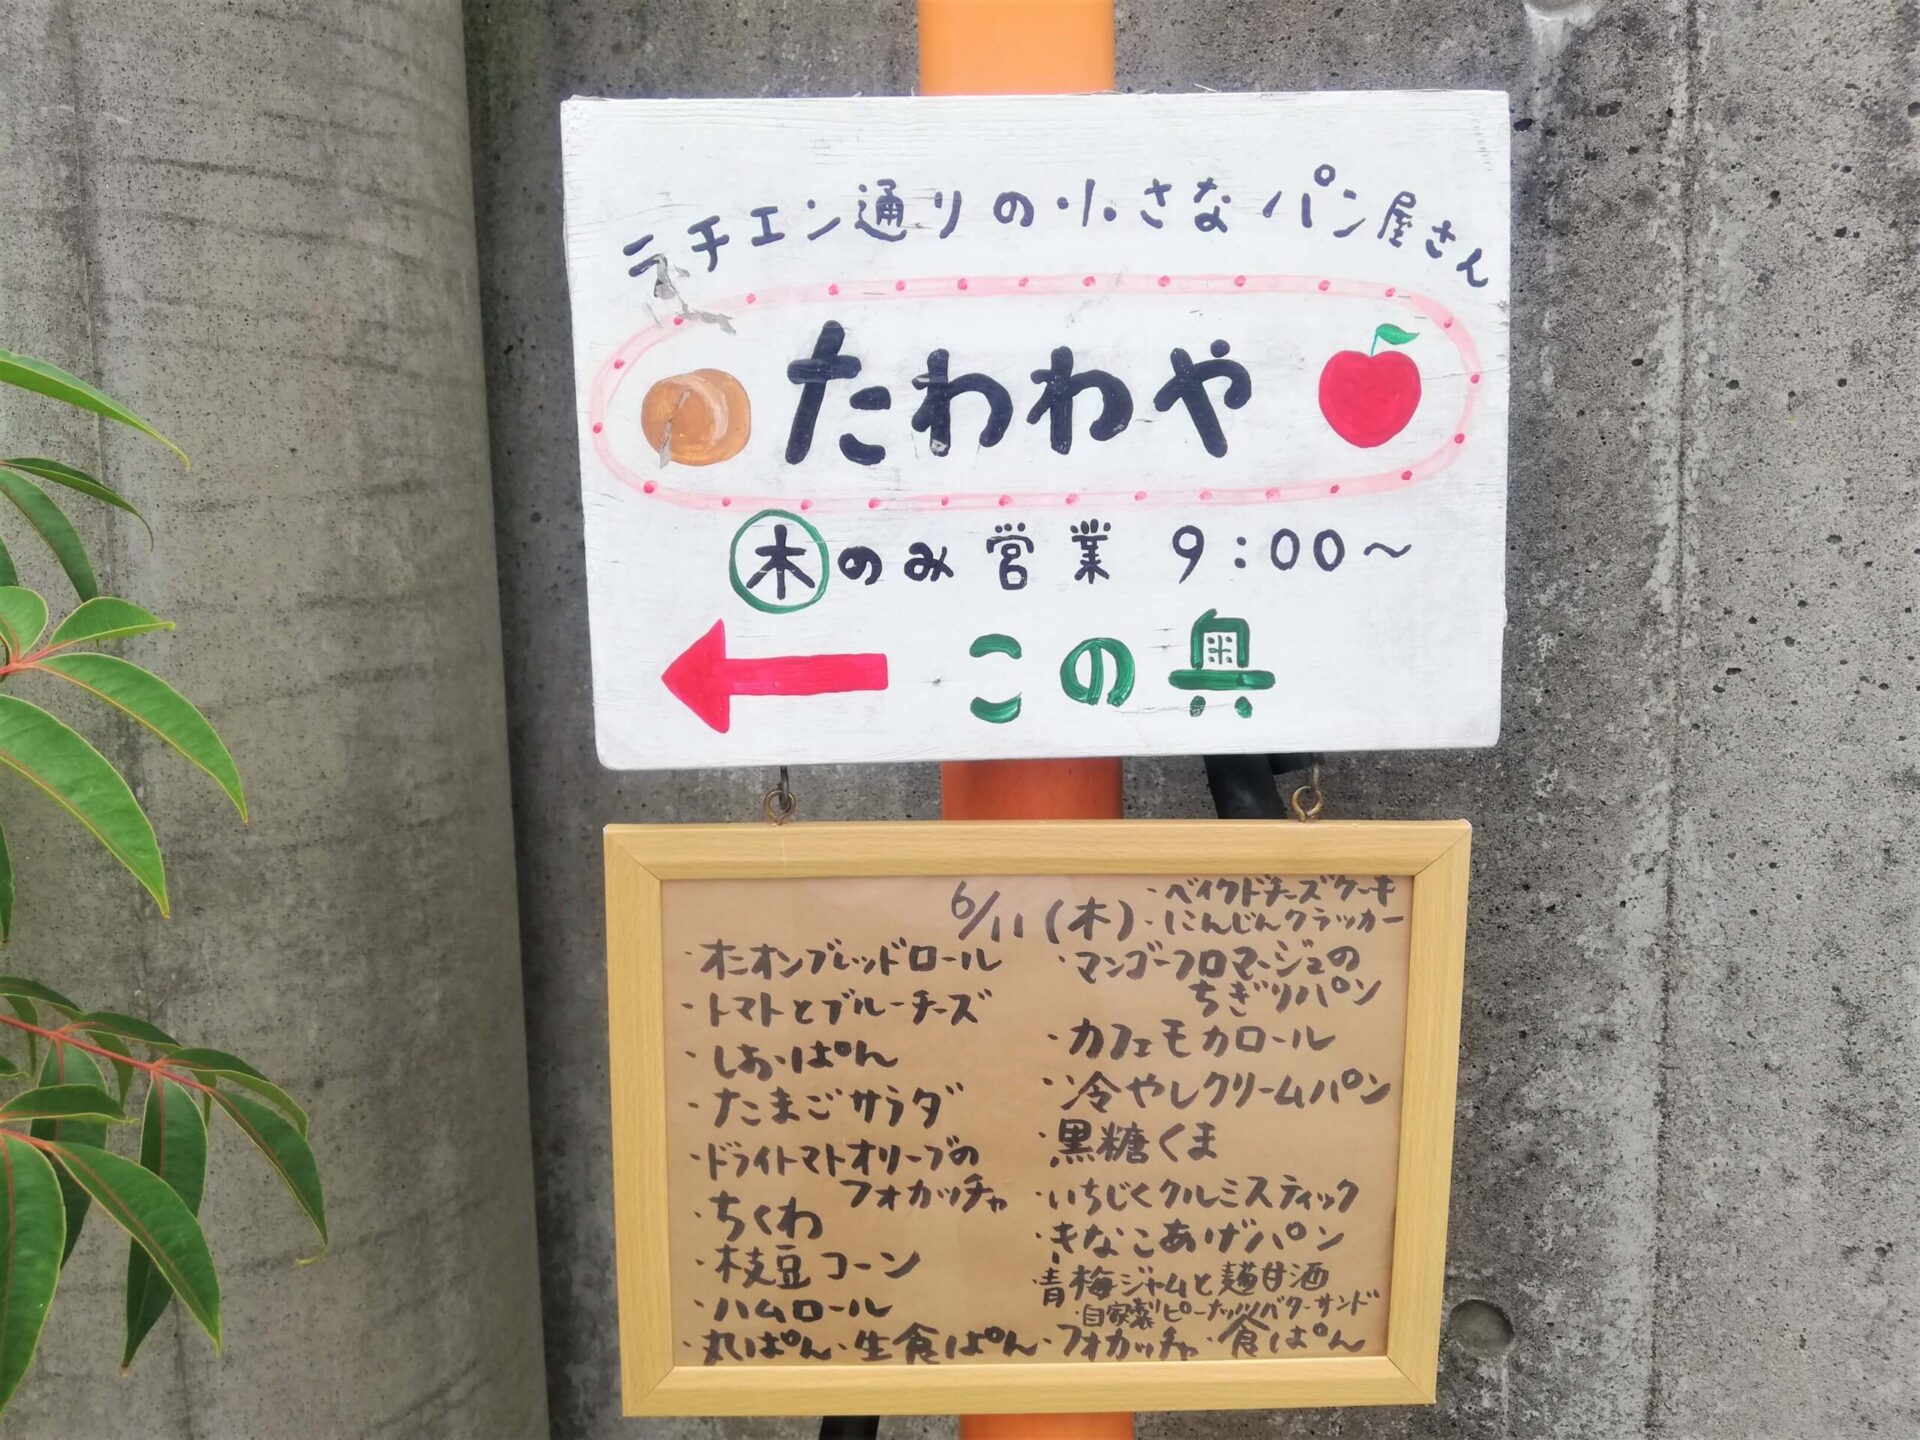 ラチエン通りの小さなパン屋さん
たわわや
木のみ営業 9:00〜
この奥
6/11(木)
・オニオンブレッドロール
・トマトとブルーチーズ
・しお・ぱん
・たまごサラダ
・ドライトマトオリーブの
フォカッチャ
・ちくわ
・枝豆コーン
・ハムロール
・ベイクドチーズケーキ
・にんじんクラッカー
・マンゴーフロマージュの
ちぎりパン
・カフェモカロール
・冷やしクリームパン
・黒糖くま
・いちじくクルミスティック
・きなこあげパン
・青梅ジャムと麹甘酒
・自家製ピーナッツバターサンド
・丸ぱん・生食ぱん・フォカッチャ・食ぱん